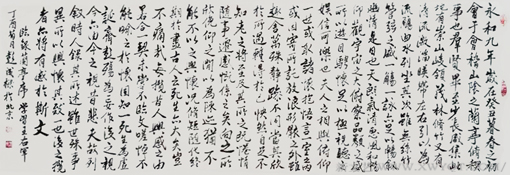 永和九年歲在癸丑暮春之初
會于會稽山陰之蘭亭脩禊
事也群賢畢至少長咸集此
地有崇山峻領茂林脩竹又有
清流激湍映帶左右引以為
流觴曲水列坐其次雖無絲竹
管弦之盛一觴一詠亦足以暢敘
幽情是日也天朗氣清惠風和暢
仰觀宇宙之大俯察品類之盛
所以遊目騁懷足以極視聽之
娛信可樂也夫人之相與俯仰
一世或取諸懷抱悟言一室之內
或因寄所託放浪形骸之外雖
趣舍萬殊靜躁不同當其欣
於所遇暫得於己快然自足不
知老之將至及其所之既惓情
隨事遷感慨係之矣向之所
欣俛仰之間以為陳迹猶不
能不以之興懷況脩短隨化終
期於盡古人云死生亦大矣豈
不痛哉每攬昔人興感之由
若合一契未嘗不臨文嗟悼不
能喻之於懷固知一死生為虛
誕齊彭殤為妄作後之視
今亦由今之視昔悲夫故列
敘時人錄其所述雖世殊事
異所以興懷其致一也後之攬
者亦將有感於斯文
臨蘭亭序學習王右軍
丁酉菊月於京